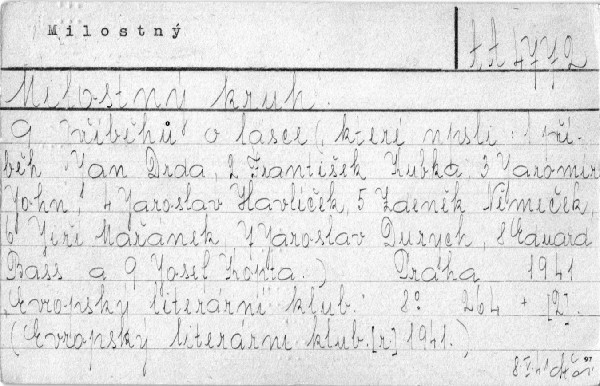 Milostný
Milostný kruh.
9 příběhů o lásce (, které napsali: 1 pří-
běh Jan Drda, 2 František Kubka, 3 Jaromír
John, 4 Jaroslav Havlíček, 5 Zdeněk Němeček,
6 Jiří Mařánek, 7 Jaroslav Durych, 8 Eduard
Bass a 9 Josef Kopta.) Praha 1941
Evropský literární klub. 8° 264 + [2].
(Evropský literární klub. [r.] 1941.)